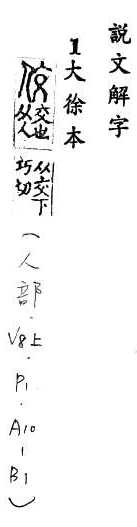 說文解字
1大徐本
佼 交也从人 从交下巧切
(人部.V8上.P1.A10-B1)